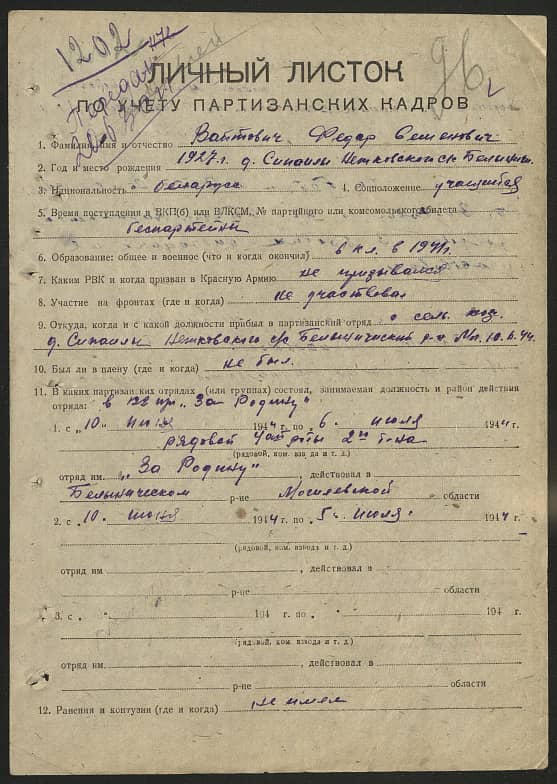 1202
96
ЛИЧНЫЙ ЛИСТОК
ПО УЧЕТУ ПАРТИЗАНСКИХ КАДРОВ
1. Фамилия имя и отчество Войтович Федор Семенович
2. Год и место рождения 1927 г. д.
3. Национальность беларусс 4. Соцположение учащийся
5. Время поступления в ВКП(б) или ВЛКСМ, № партийного или комсомольского билета
беспартейны
6. Образование: общее и военное (что и когда окончил) 6 кл. в 1941 г.
7. Каким РВК и когда призван в Красную Армию не призывался
8. Участие на фронтах (где и когда) не участвовал
9. Откуда, когда и с какой должности прибыл в партизанский отряд с сель. хоз.
д. с/с Белыничский р-н 10.6.44.
10. Был ли в плену (где и когда) не был.
11. В каких партизанских отрядах (или группах) состоял, занимаемая должность и район действия
отряда: в 122 пр. „За Родину"
1. с „10" июня 1944 г. по 6. июля 1944 г.
рядовой 2й б-на
(рядовой, ком. взвода и т. д.)
отряд им. „За Родину" действовал в
Белыничском р-не Могилевской области
2. с „10. июня 1944 г. по 5. июля. 1944 г.
(рядовой, ком. взвода и т. д.)
отряд им , действовал в
р-не области
3. с „ " 194 г. по „ " 194 г.
(рядовой, ком. взвода и т. д.)
отряд им. , действовал в
р-не области
12. Ранения и контузии (где и когда) не имел